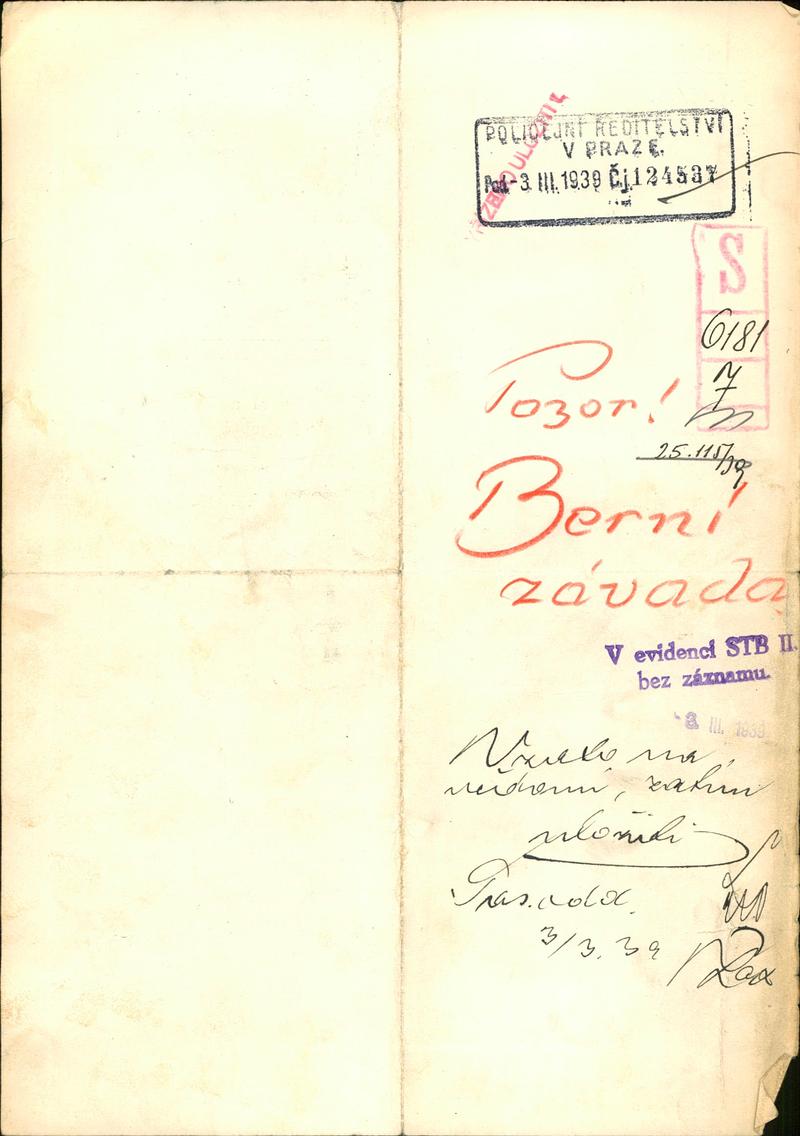 POLICEJNÍ ŘEDITELSTVÍ
V PRAZE.
Pod -3. III. 1939 Čj. 124537
S
6181
7
Pozor!
25.115/39
Berní
závada
V evidenci STB II.
bez záznamu.
-3. III. 1939
Vzato na
vědomí, zatím
uložiti
Pas. odd.
3/3.39